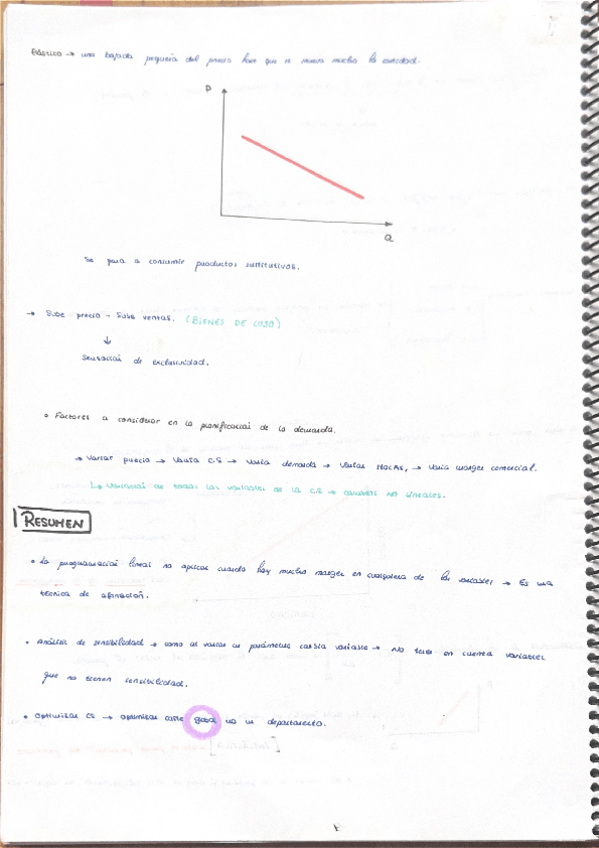 Elástica → una bajada pequeña del precio hace que se mueva mucho la cantidad.
P
Q
Se pasa a consumir productos sustitutivos.
→ Sube precio - Sube ventas. (BIENES DE LUJO)
↓
Sensación de exclusividad.
• Factores a considerar en la planificación de la demanda.
→ Variar precio → Varía CS → Varía demanda → Varías → Varía margen comercial.
↳ Variación de todas las variables de la CS → cambios no lineales.
RESUMEN
• La programación lineal no aplicar cuando hay mucho margen en cualquiera de las variables → Es una
técnica de afinación.
• Análisis de sensibilidad → como al variar un parámetro cambia variable → No tener en cuenta variables
que no tienen sensibilidad.
• Optimizar CS → optimizar coste global no un departamento.